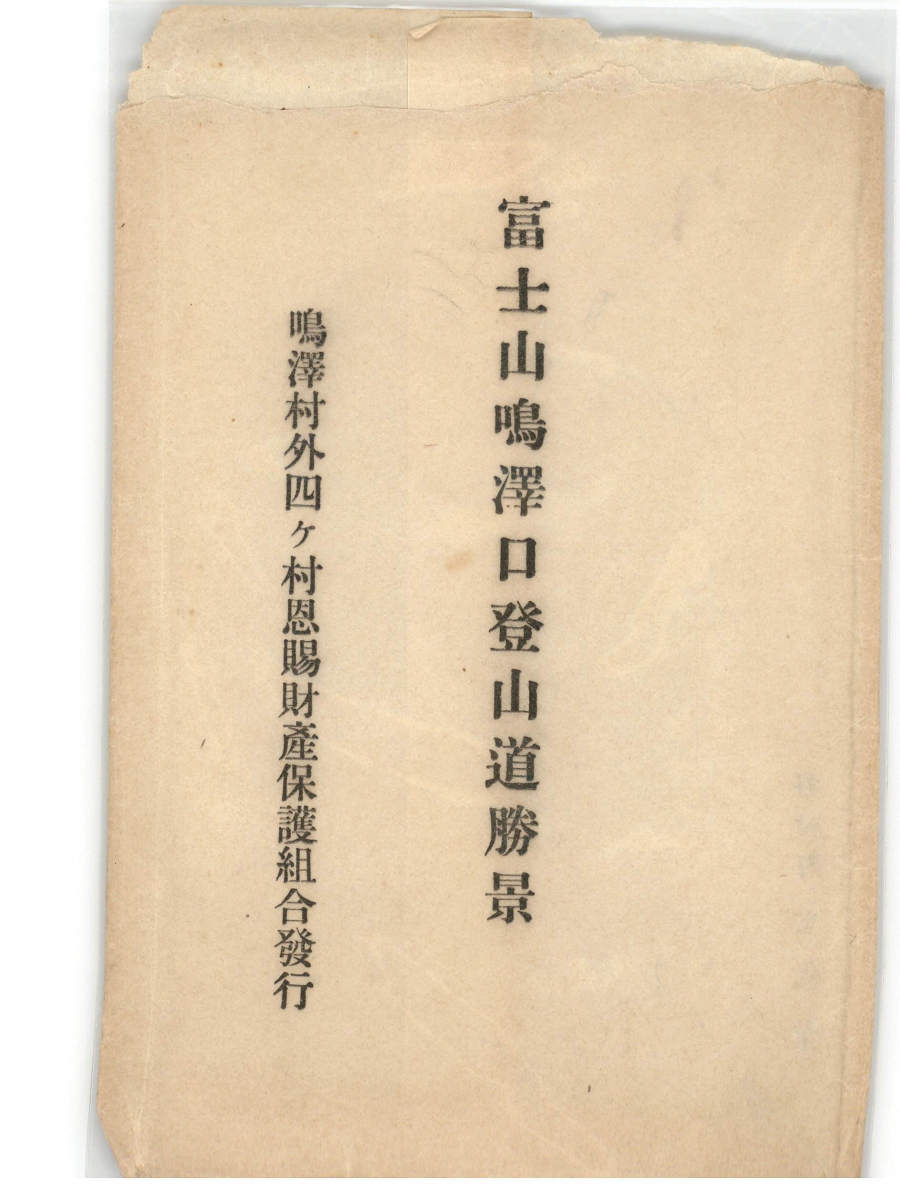 富士山鳴澤口登山道勝景
鳴澤村外四ヶ村恩賜財產保護組合發行